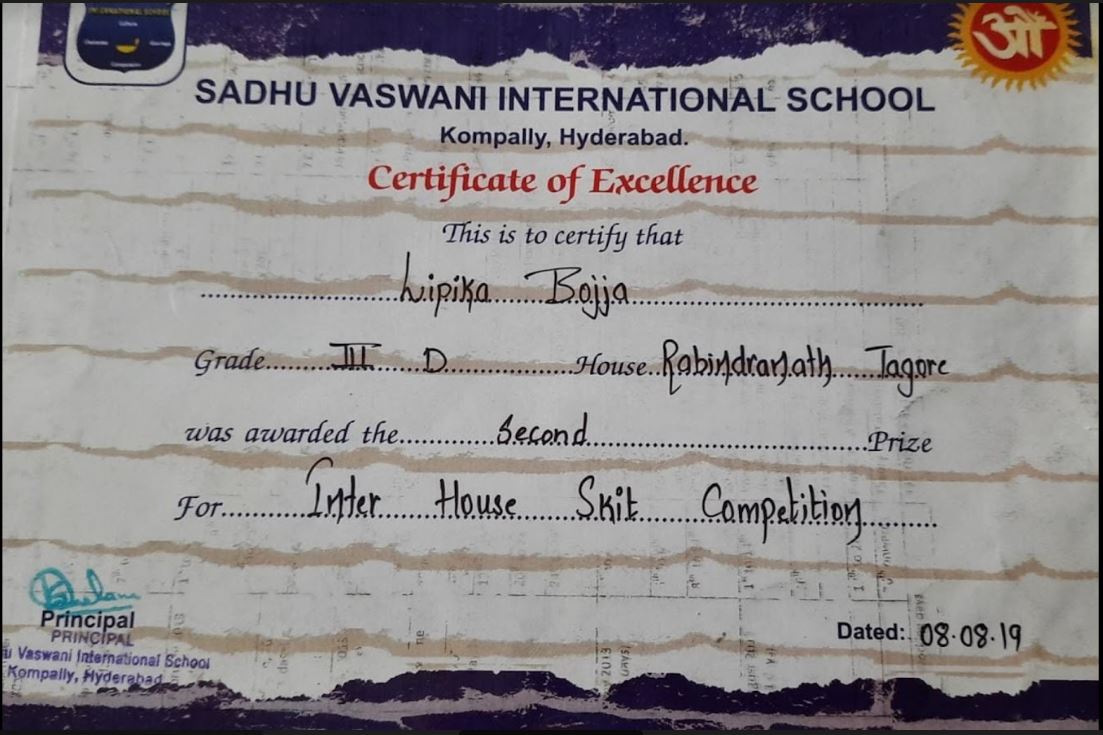 INTERNATIONAL SCHOOL
ओं
SADHU VASWANI INTERNATIONAL SCHOOL
Kompally, Hyderabad.
Certificate of Excellence
This is to certify that
Lipika Bojja
Grade III D House Rabindranath Tagore
was awarded the Second Prize
For Inter House Skit Competition
Principal
PRINCIPAL
u Vaswani International School
Kompally, Hyderabad
Dated: 08.08.19